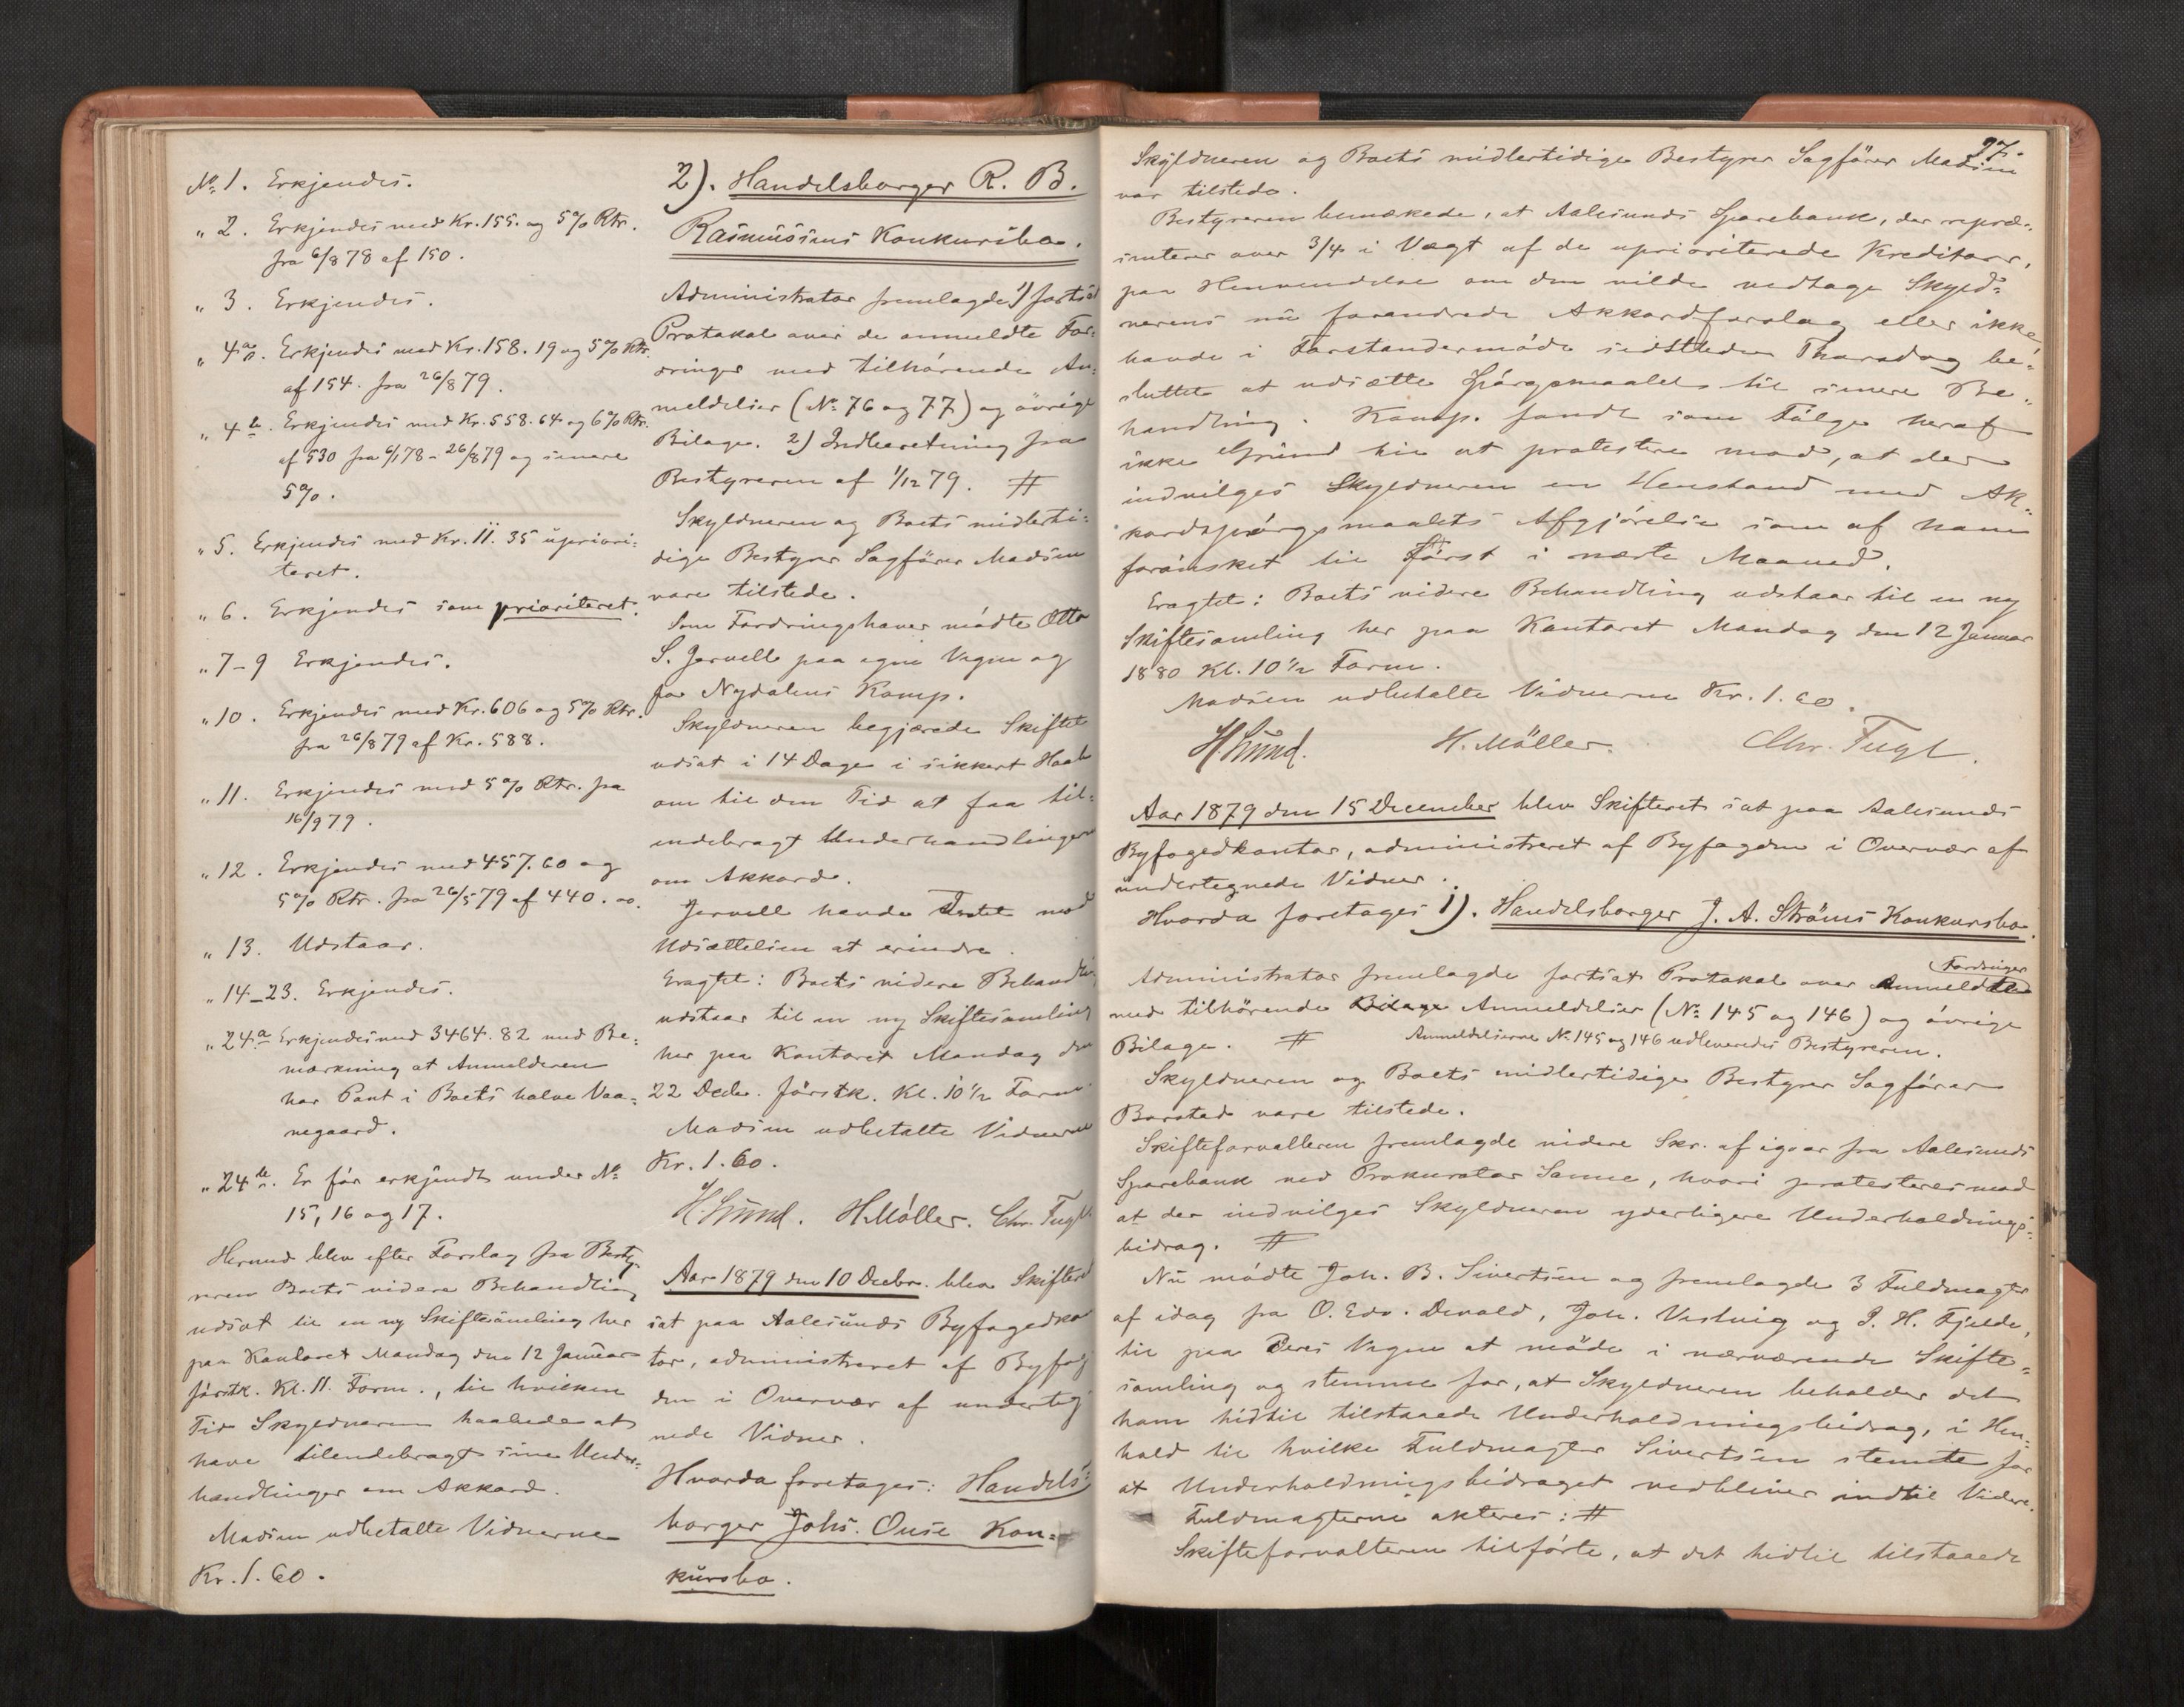 No 1. Erkjendes.
" 2. Erkjendes med Kr. 155. og 5% Rtr.
fra 6/8 78 af 150.
" 3. Erkjendes.
" 4a. Erkjendes med Kr. 158.19 og 5% Rtr.
af 154. fra 26/8 79.
" 4b. Erkjendes med Kr. 558.64 og 6% Rtr.
af 530 fra 6/1 78 - 26/8 79 og senere
5%.
" 5. Erkjendes med Kr. 11.35 upriori-
teret.
" 6. Erkjendes som prioriteret.
" 7-9 Erkjendes.
" 10. Erkjendes med Kr. 606 og 5% Rtr.
fra 26/8 79 af Kr. 588.
" 11. Erkjendes med 5% Rtr. fra
16/9 79.
" 12. Erkjendes med 457.60 og
5% Rtr. fra 26/5 79 af 440.00.
" 13. Udstaar.
" 14-23. Erkjendes.
" 24a Erkjendes med 3464.82 med Be-
mærkning at Anmelderen
har Pant i Boets halve Vaa-
negaard.
" 24b. Er før erkjendt under No
15, 16 og 17.
Herved blev efter Forslag fra Besty-
reren Boets videre Behandling
udsat til en ny Skiftesamling her
paa Kontoret Mandag den 12 Januar
førstk. Kl. 11. Form., til hvilken
Tid Skyldneren haabede at
have tilendebragt sine Under-
handlinger om Akkord.
Madsen udbetalte Vidnerne
Kr. 1.60.
2). Handelsborger R. B.
Rasmussens Konkursbo.
Administrator fremlagde 1) fortsat
Protokol over de anmeldte For-
dringer med tilhørende An-
meldelser (No 76 og 77) og øvrige
Bilage. 2) Indberetning fra
Bestyreren af 1/12 79. #
Skyldneren og Boets midlerti-
dige Bestyrer Sagfører Madsen
vare tilstede.
Som Fordringshaver mødte Otto
S. Jervell paa egne Vegne og
for Nydalens Komp.
Skyldneren begjærede Skiftet
udsat i 14 Dage i sikkert Haab
om til den Tid at faa til-
endebragt Underhandlingerne
om Akkord.
Jervell havde Intet mod
Udsættelsen at erindre.
Eragtet: Boets videre Behandling
udstaar til en ny Skiftesamling
her paa Kontoret Mandag den
22 Decbr. førstk. Kl. 10 1/2 Form.
Madsen udbetalte Vidnerne
Kr. 1.60.
H. Lund. H. Møller. Chr. Fugl.
Aar 1879 den 10 Decbr. blev Skifteret
sat paa Aalesunds Byfogedkon-
tor, administreret af Byfog-
den i Overvær af underteg-
nede Vidner.
Hvorda foretages: Handels-
borger Johs. Ouse Kon-
kursbo.
97.
Skyldneren og Boets midlertidige Bestyrer Sagfører Madsen
var tilstede.
Bestyreren bemærkede, at Aalesunds Sparebank, der repræ-
senterer over 3/4 i Vægt af de uprioriterede Kreditorer,
paa Henvendelse om den vilde vedtage Skyld-
nerens nu forandrede Akkordforslag eller ikke
havde i Forstandermøde sidstleden Thorsdag be-
sluttet at udsætte Spørgsmaalet til senere Be-
handling. Komp. fandt som Følge heraf
ikke Grund til at protestere mod, at der
indvilges Skyldneren en Henstand med Ak-
kordspørgsmaalets Afgjørelse som af ham
forønsket til Først i næste Maaned.
Eragtet: Boets videre Behandling udstaar til en ny
Skiftesamling her paa Kontoret Mandag den 12 Januar
1880 Kl. 10 1/2 Form.
Madsen udbetalte Vidnerne Kr. 1.60.
H. Lund. H. Møller. Chr. Fugl.
Aar 1879 den 15 December blev Skifteret sat paa Aalesunds
Byfogedkontor, administreret af Byfogden i Overvær af
undertegnede Vidner.
Hvorda foretages 1). Handelsborger J. A. Strøms Konkursbo.
Administrator fremlagde fortsat Protokol over Anmeldte Fordringer
med tilhørende Bilage Anmeldelser (No 145 og 146) og øvrige
Bilage. # Anmeldelserne No 145 og 146 udleveredes Bestyreren.
Skyldneren og Boets midlertidige Bestyrer Sagfører
Barstad vare tilstede.
Skifteforvalteren fremlagde videre Skr. af igaar fra Aalesunds
Sparebank ved Prokurator Sanne, hvori protesteres mod
at der indvilges Skyldneren yderligere Underholdnings-
bidrag. #
Nu mødte Joh. B. Sivertsen og fremlagde 3 Fuldmagter
af idag fra O. Edv. Devold, Joh. Vestvig og I. H. Fjelde,
til paa Deres Vegne at møde i nærværende Skifte-
samling og stemme for, at Skyldneren beholder det
ham hidtil tilstaaede Underholdningsbidrag, i Hen-
hold til hvilke Fuldmagter Sivertsen stemte for
at Underholdningsbidraget vedbliver indtil Videre.
Fuldmagterne akteres: #
Skifteforvalteren tilførte, at det hidtil tilstaaede